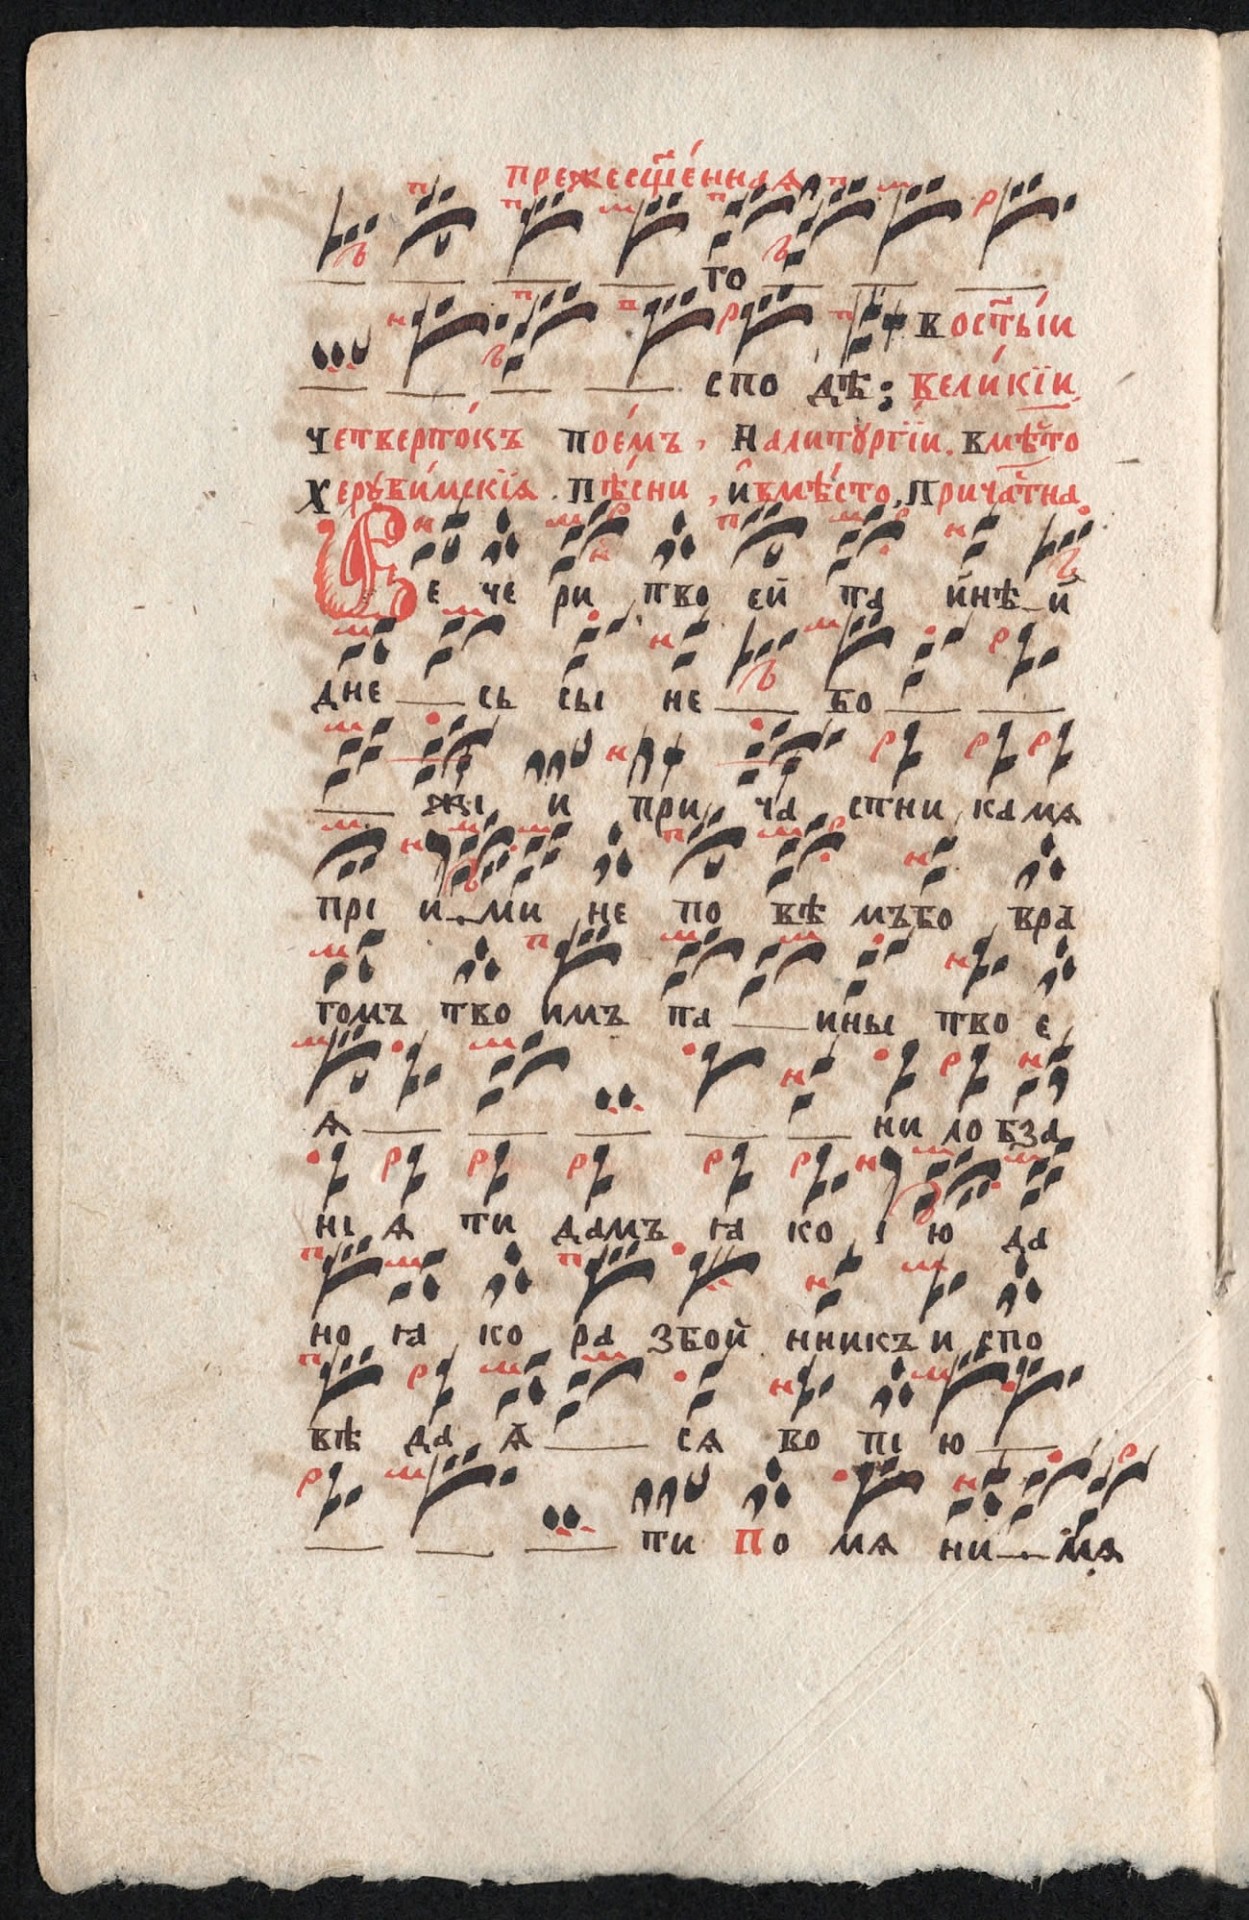 прежесщ҃е́нная
го
востыи
спо дѣ; вели́кїи
четверто́къ пое́мъ, Налитꙋргі́и. вмѣ́сто
Херꙋви́мскїѧ. Пѣ́сни, ивмѣ́сто, Прича́стна
Ве че ри тво ей та йнѣ й
дне сь сы не бо
жі и при ча стни ка мѧ
прі и ми не по вѣ мъ бо вра
гомъ тво имъ та ины тво е
ѧ ни ло бза
ні ѧ ти дамъ ꙗ ко і ю да
но ꙗ ко ра збой нникъ и спо
вѣ да ѧ сѧ во пі ю
ти По мѧ ни мѧ